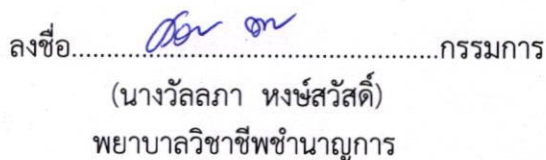 ลงชื่อ..............................................กรรมการ
(นางวัลลภา หงษ์สวัสดิ์)
พยาบาลวิชาชีพชำนาญการ